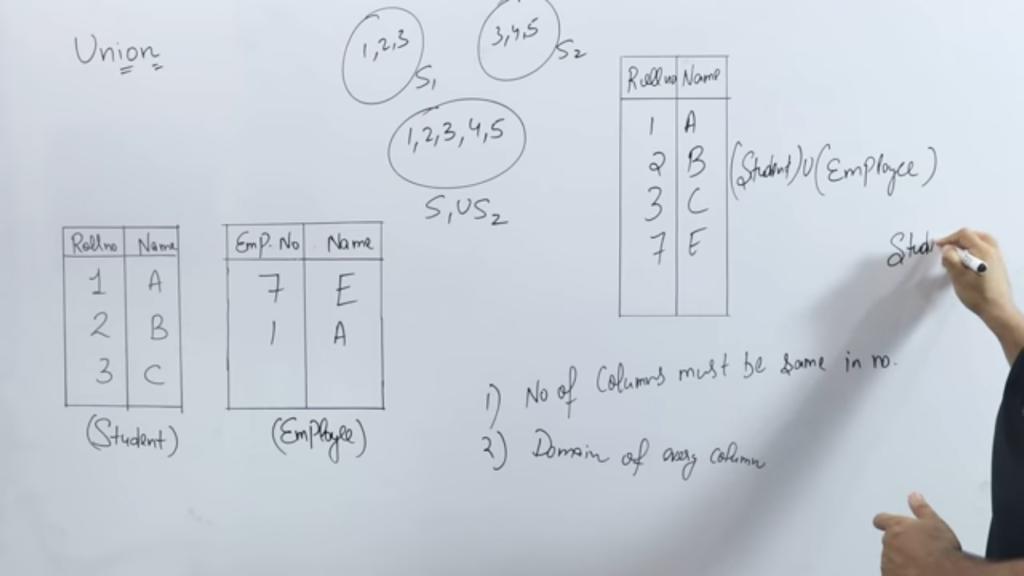 Union
1,2,3
S1
3,4,5
S2
1,2,3,4,5
S1US2
Rollno Name
1 A
2 B
3 C
(Student)
Emp. No Name
7 E
1 A
(Employee)
Rollno Name
1 A
2 B
3 C
7 E
(Student)U(Employee)
Stud
1) No of Columns must be same in no.
2) Domain of every column